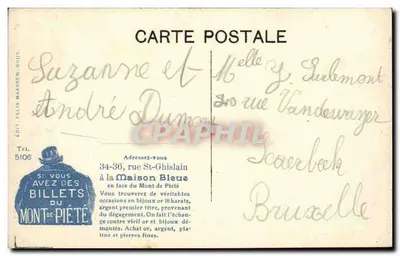 CARTE POSTALE
Suzanne et
André Dumont
Melle Y.
rue
Scaerbeck
Bruxelle
EDIT. FELIX MAARSEN, BRUX.
TEL.
5106
SI VOUS
AVEZ DES
BILLETS
DU
MONT-DE-PIÉTÉ
Adressez-vous
34-36, rue St-Ghislain
à la Maison Bleue
en face du Mont de Piété
Vous trouverez de véritables
occasions en bijoux or 18 carats,
argent premier titre, provenant
du dégagement. On fait l'échan-
ge contre vieil or et bijoux dé-
modés. Achat or, argent, pla-
tine et pierres fines.